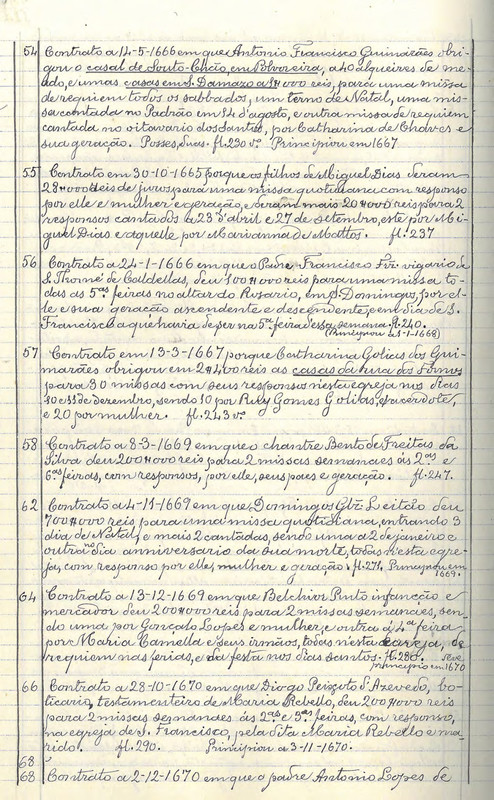 54 Contrato a 14-5-1666 em que Antonio Francisco Guimarães obri-
gou o casal de Souto-Chão, em Polvoreira, a 40 alqueires de me-
ado, e umas casas em S. Damazo a reis, para uma missa
de requiem todos os sabbados, um terno de Natal, uma mis-
sa cantada no Padrão em 14 d'agosto, e outra missa de requiem
cantada no oitavario dos Santos, por Catharina de Chaves e
sua geração. Posses, duas. fl. 230 vº. Principiou em 1667
55 Contrato em 30-10-1665 porque os filhos de Miguel Dias deram
28#000 reis de juros para uma missa quotidiana com responso
por elle e mulher e geração, e deram mais 20#000 reis para 2
responsos cantados a 23 d'abril e 27 de setembro, este por Mi-
guel Dias e aquelle por Marianna de Mattos. fl. 237
56 Contrato a 24-1-1666 em que o Padre Francisco Frz vigario de
S. Thomé de Caldellas, deu 100#000 reis para uma missa to-
das as 5as feiras no altar do Rosario, em S. Domingos, por el-
le e sua geração ascendente e descendente, e em dia de S.
Francisco a que havia de ser na 5ª feira dessa semana. fl. 240.
(Principiou a 5-1-1668)
57 Contrato em 13-3-1667 porque Catharina Golias dos Gui-
marães obrigou em 2#400 reis as casas da rua dos Fornos
para 30 missas com seus responsos nesta egreja nos dias
10 e 11 de dezembro, sendo 10 por Ruy Gomes Golias, sacerdote,
e 20 por mulher. fl. 243 vº
58 Contrato a 8-3-1669 em que o chantre Bento de Freitas da
Silva deu 200#000 reis para 2 missas semanaes ás 2as e
6as feiras, com responsos, por elle, seus paes e geração. fl. 247.
62 Contrato a 4-11-1669 em que Domingos Glz Leitão deu
700#000 reis para uma missa quotidiana, entrando 3
dia de Natal, e mais 2 cantadas, sendo uma a 2 de janeiro e
outra no dia anniversario da sua morte, todas n'esta egre-
ja, com responso por elle, mulher e geração. fl. 271. Principiou em
1669.
64 Contrato a 13-12-1669 em que Belchior Pinto infanção e
mercador deu 200#000 reis para 2 missas semanaes, sen-
do uma por Gonçalo Lopes e mulher, e outra á 4ª feira
por Maria Camella e seus irmãos, todas n'esta egreja, de
requiem nas ferias, e da festa nos dias santos. fl. 280.
principio em 1670
66 Contrato a 28-10-1670 em que Diogo Peixoto d'Azevedo, bo-
ticario, testamenteiro de Maria Rebello, deu 200#000 reis
para 2 missas semanaes ás 2as e 5as feiras, com responso,
na egreja de S. Francisco, pela dita Maria Rebello e ma-
rido. fl. 290. Principiou a 3-11-1670.
68
68 Contrato a 2-12-1670 em que o padre Antonio Lopes de